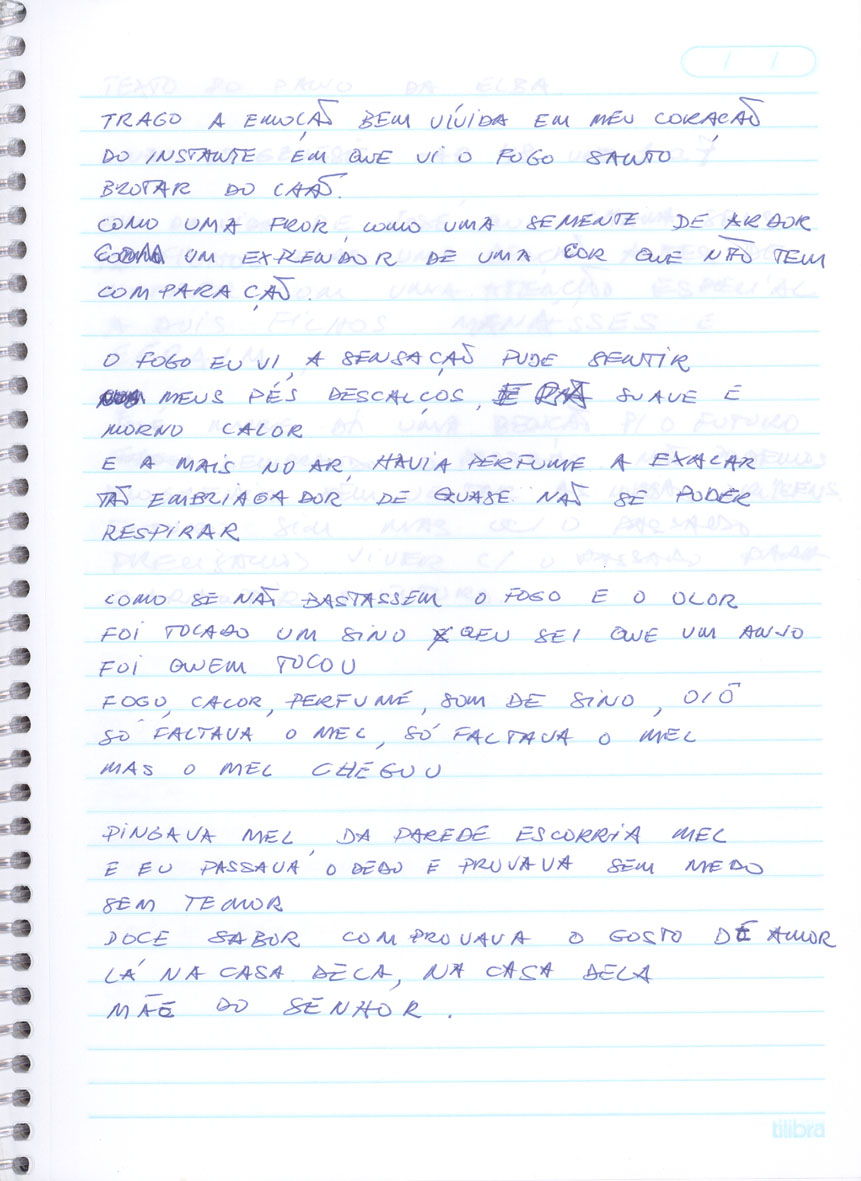 TRAGO A EMOÇÃO BEM VÍVIDA EM MEU CORAÇÃO
DO INSTANTE EM QUE VI O FOGO SANTO
BROTAR DO CHÃO.
COMO UMA FROR, COMO UMA SEMENTE DE ARDOR
UM EXPLENDOR DE UMA COR QUE NÃO TEM
COMPARAÇÃO.
O FOGO EU VI, A SENSAÇÃO PUDE SENTIR
MEUS PÉS DESCALÇOS, SUAVE E
MORNO CALOR
E A MAIS NO AR, HAVIA PERFUME A EXALAR
TÃO EMBRIAGADOR DE QUASE NÃO SE PODER
RESPIRAR
COMO SE NÃO BASTASSEM O FOGO E O OLOR
FOI TOCADO UM SINO EU SEI QUE UM ANJO
FOI QUEM TOCOU
FOGO, CALOR, PERFUME, SOM DE SINO, OIÔ
SÓ FALTAVA O MEL, SÓ FALTAVA O MEL
MAS O MEL CHEGOU
PINGAVA MEL, DA PAREDE ESCORRIA MEL
E EU PASSAVA O DEDO E PROVAVA SEM MEDO
SEM TEMOR
DOCE SABOR COMPROVAVA O GOSTO DE AMOR
LÁ NA CASA DELA, NA CASA DELA
MÃE DO SENHOR.
tilibra